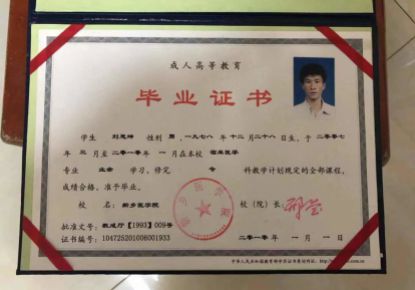 成人高等教育
毕业证书
学生 刘思坤 性别 男，一九七八年十二月二十八日生，于二零零七
年三月至二零一零年一月在本校 临床医学
专业 业余 学习，修完 专 科教学计划规定的全部课程，
成绩合格，准予毕业。
校 名： 新乡医学院 校（院）长：
批准文号：教成厅【1993】009号
证书编号：104725201006001933 二零一零年一月一日